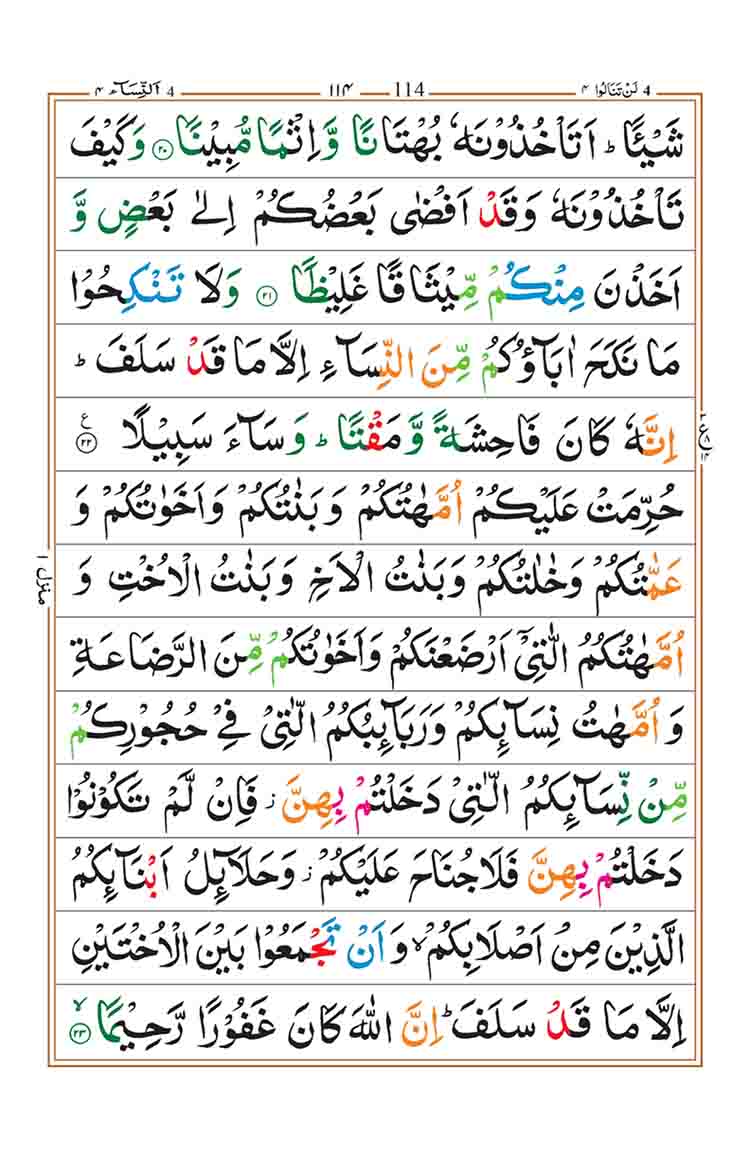 4 لَنْ تَنَالُوا ۴ 114 ۱۱۴ 4 اَلنِّسَآء ۴
شَيْـًٔا ؕ اَتَاْخُذُوْنَهٗ بُهْتَانًا وَّاِثْمًا مُّبِيْنًا ۲۰ وَكَيْفَ
تَاْخُذُوْنَهٗ وَقَدْ اَفْضٰى بَعْضُكُمْ اِلٰى بَعْضٍ وَّ
اَخَذْنَ مِنْكُمْ مِّيْثَاقًا غَلِيْظًا ۲۱ وَلَا تَنْكِحُوْا
مَا نَكَحَ اٰبَآؤُكُمْ مِّنَ النِّسَآءِ اِلَّا مَا قَدْ سَلَفَ ؕ
اِنَّهٗ كَانَ فَاحِشَةً وَّمَقْتًا ؕ وَسَآءَ سَبِيْلًا ۲۲ ع
حُرِّمَتْ عَلَيْكُمْ اُمَّهٰتُكُمْ وَبَنٰتُكُمْ وَاَخَوٰتُكُمْ وَ
عَمّٰتُكُمْ وَخٰلٰتُكُمْ وَبَنٰتُ الْاَخِ وَبَنٰتُ الْاُخْتِ وَ
اُمَّهٰتُكُمُ الّٰتِيْٓ اَرْضَعْنَكُمْ وَاَخَوٰتُكُمْ مِّنَ الرَّضَاعَةِ
وَاُمَّهٰتُ نِسَآئِكُمْ وَرَبَآئِبُكُمُ الّٰتِيْ فِيْ حُجُوْرِكُمْ
مِّنْ نِّسَآئِكُمُ الّٰتِيْ دَخَلْتُمْ بِهِنَّ ز فَاِنْ لَّمْ تَكُوْنُوْا
دَخَلْتُمْ بِهِنَّ فَلَا جُنَاحَ عَلَيْكُمْ ز وَحَلَآئِلُ اَبْنَآئِكُمُ
الَّذِيْنَ مِنْ اَصْلَابِكُمْ ۙ وَاَنْ تَجْمَعُوْا بَيْنَ الْاُخْتَيْنِ
اِلَّا مَا قَدْ سَلَفَ ؕ اِنَّ اللهَ كَانَ غَفُوْرًا رَّحِيْمًا ۲۳ ۙ
منزل ۱